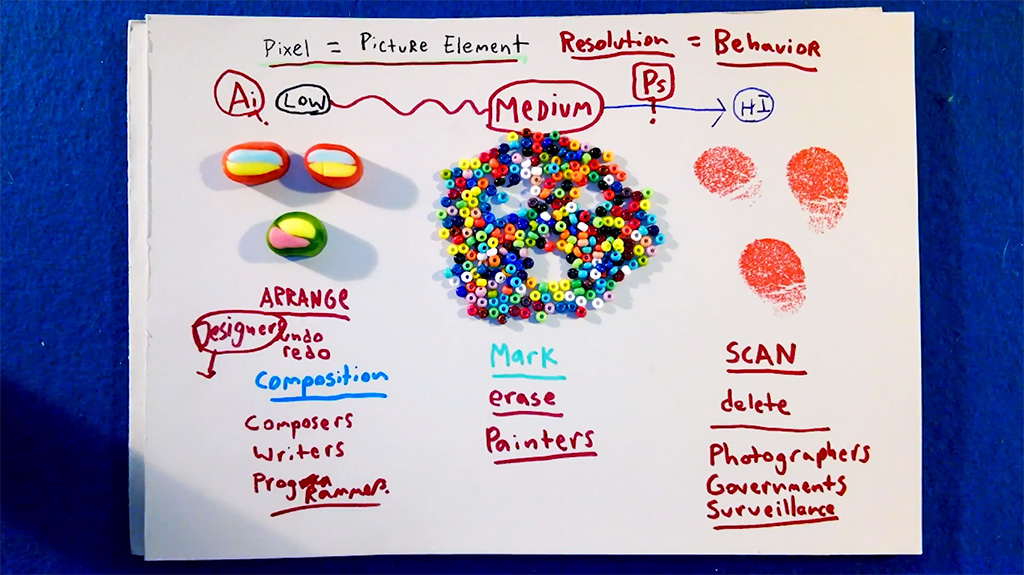 Pixel = Picture Element Resolution = Behavior
Ai LOW MEDIUM Ps HI
ARRANGE
Designer undo
redo
Composition
Composers
Writers
Programmers.
Mark
erase
Painters
SCAN
delete
Photographers
Governments
Surveillance